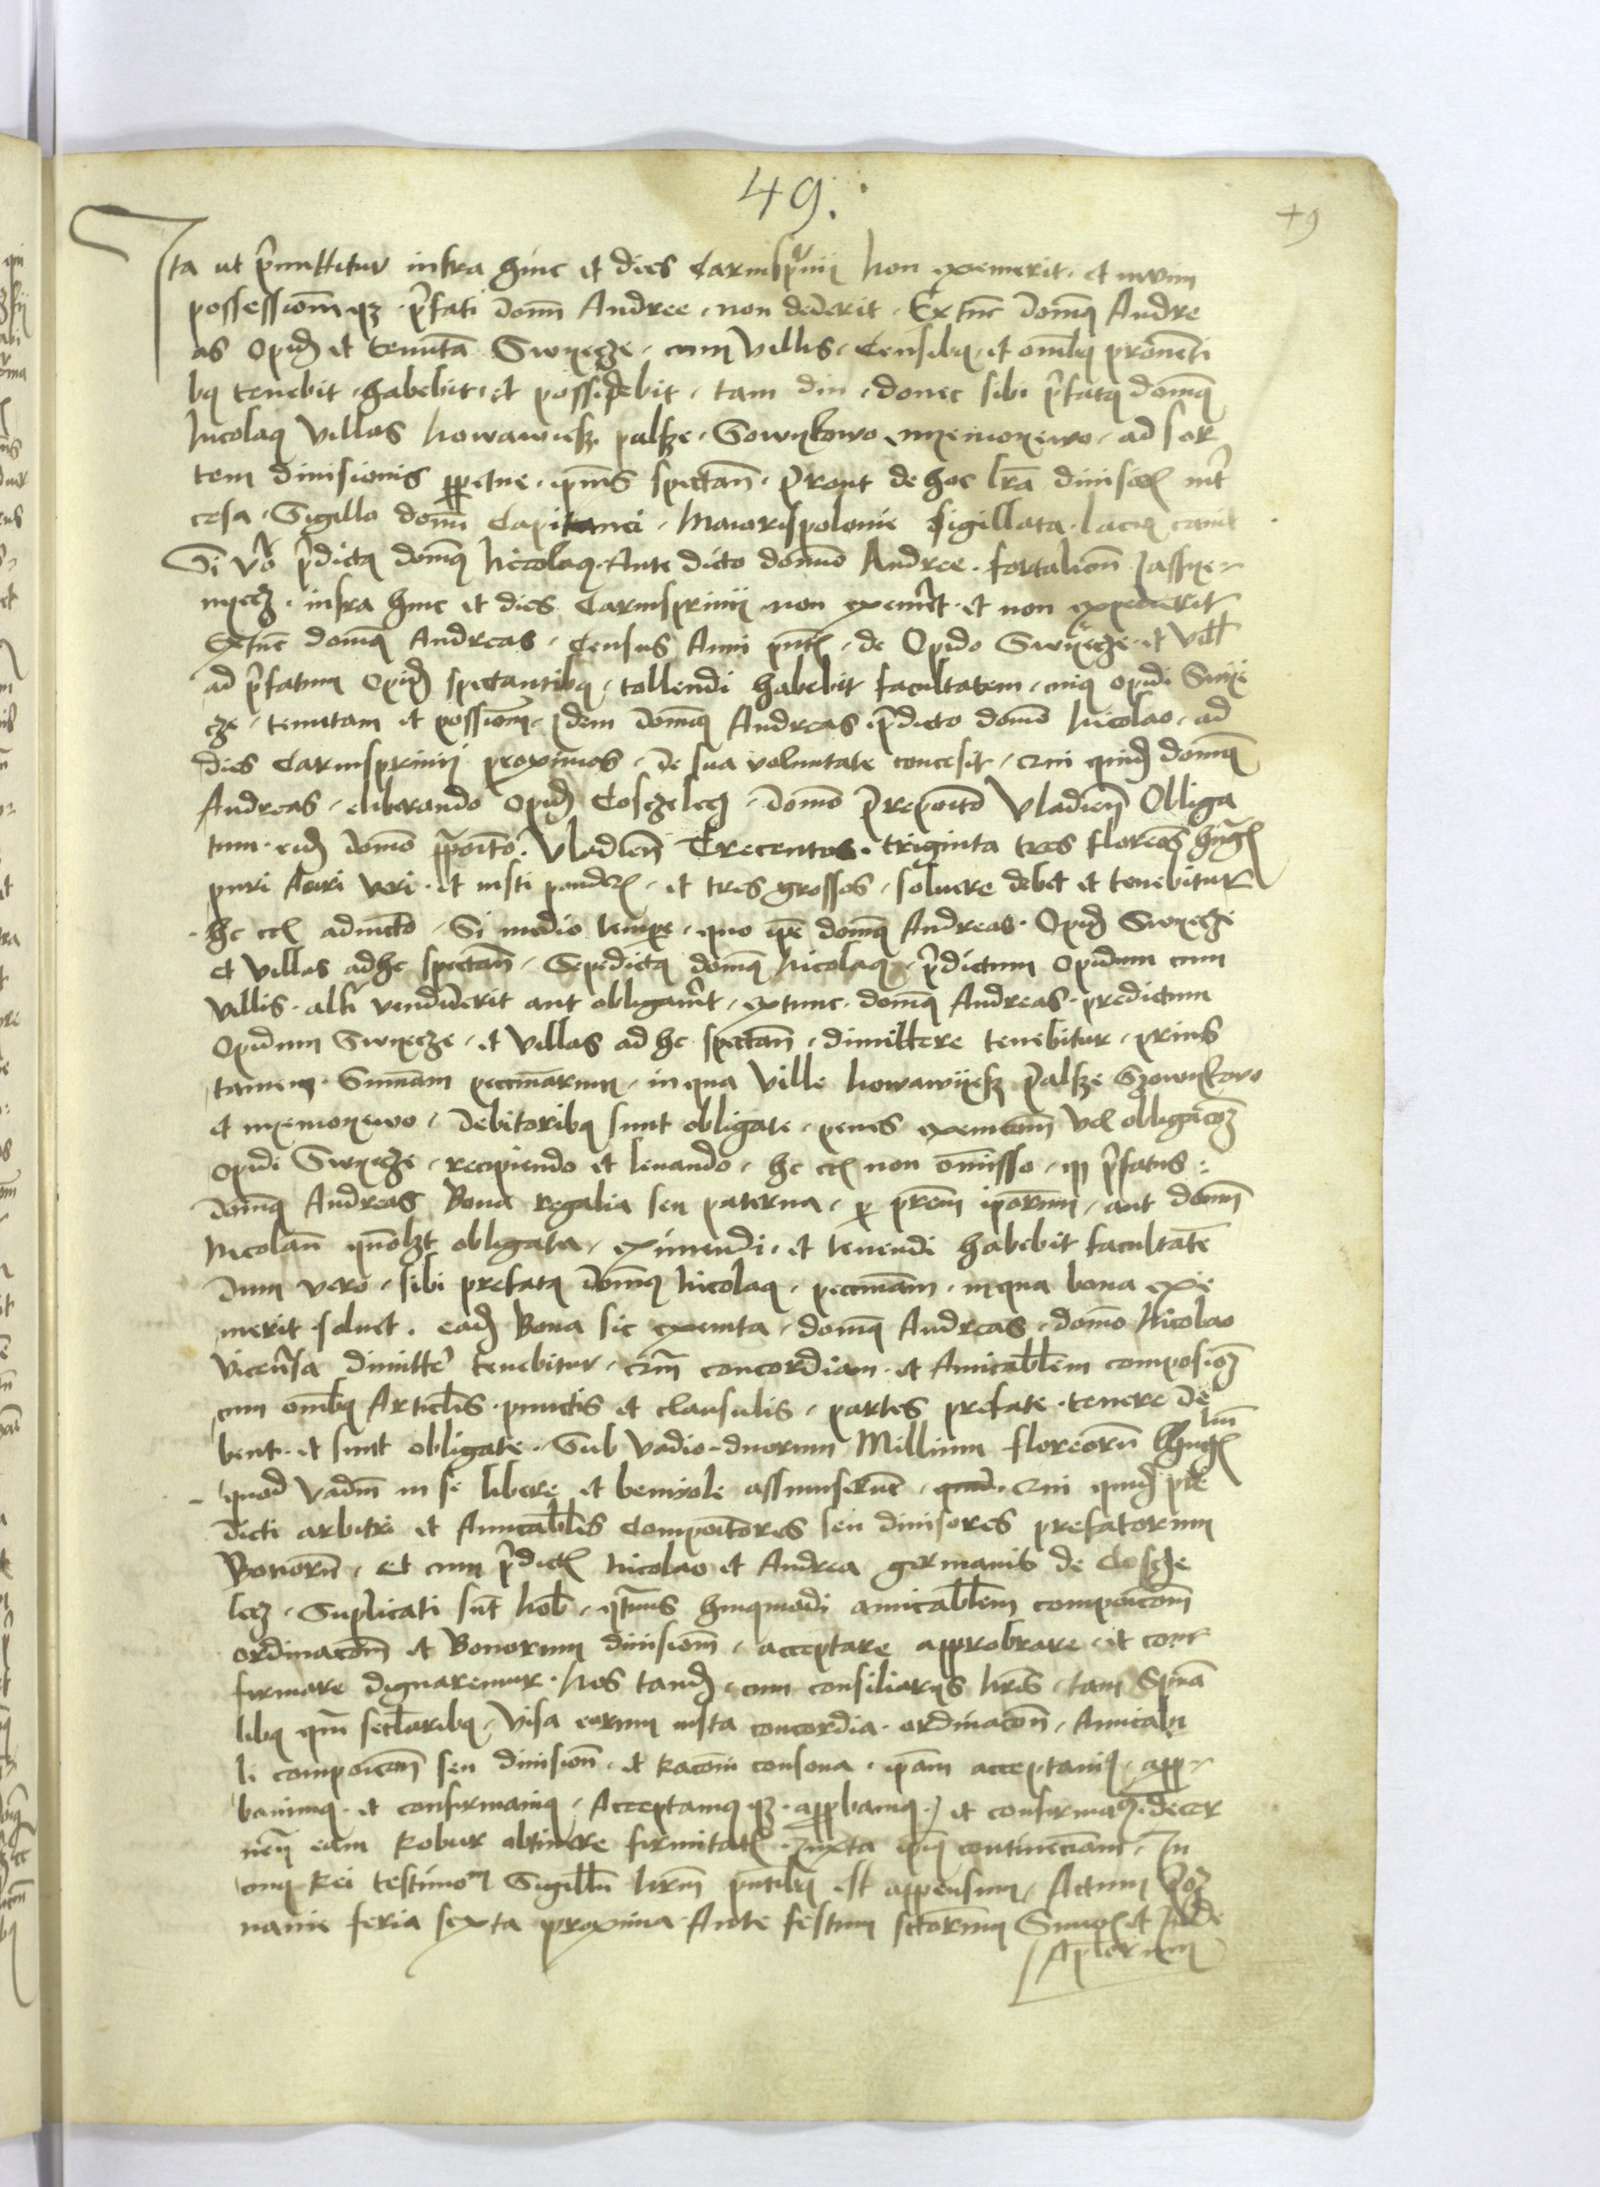 49.
49
Ita ut p̄mittitur infra hinc et dies Carnisp̄uii non exemerit et in vim
possessionē̄ qz p̄fati domī Andree non dederit Ex tūc domq Andre
as Opidū et tenutā Swyecze cum villis Censibq et omībq proventi
bq tenebit habebit et possidebit tam diu donec sibi p̄fatq domq
Nicolaq villas Nowawiesz palsze Sownkowo ad sor
tem divisionis ppetue spectan̄ Prout de hoc lrā divisio
cesa Sigillo domī Capitanei Maiorispolonie sigillata lacius canit
Si vo p̄dictq domq Nicolaq Ante dicto domino Andree fortalicium
infra hinc et dies Carnisprivii non exem̄it et non expedierit
Extūc domq Andreas Census Anni pn̄t de Opido Swyecze et vill
ad p̄fatum Opidū spectantibq tollendi habebit facultatem cuiq opidi Swye
cze tenutam et possionē idem domq Andreas p̄dicto domō Nicolao ad
dies Carnisprivii proximos de sua voluntate concesit Qui quid̄ domq
Andreas eliberando Opid̄ Coszelecz domō Preposito Vladien̄ Obliga
tum eid̄ domō Vladien̄ Trecentos triginta tres florēos hung
puri Auri veri et iusti ponder et tres grossos solvere debet et tenebitur
hc ect adiuncto Si medio tempe quo ipē domq Andreas Opid̄ Swyecze
et villas adhc spectan̄ Sepedictq domq Nicolaq p̄dictum opidum cum
villis alt̄i vendiderit aut obligav̄it extunc domq Andreas predictum
Opidum Swyecze et villas ad hc spectan̄ dimittere tenebitur prius
tamen Sumam pecuniarum in qua ville Nowawyesz Palsze Szownkovo
et debitoribq sunt obligate penes exemcionē vel obligacōz
opidi Swyecze recipiendo et levando hc ect non omisso qz p̄fatus
domq Andreas Bona regalia seu paterna p prem ipōrum aut domī
Nicolaū obligata eximendi et tenendi habebit facultatē
dum vero sibi prefatq domq Nicolaq pecuniam in qua bona exie
merit solvet ead̄ Bona sic exempta domq Andreas domō Nicolao
vicēusa dimitter̄ tenebitur concordiam et Amicabilem composicōz
cum omībq Articulis punctis et clausulis partes prefate tenere de
bent et sunt obligate Sub vadio duorum Millium florēorū hung
quod vadiū in se libere et benivole assumserūt Qui quid̄ pre
dicti arbitri et Amicabiles Compositores seu divisores prefatorum
Bonorū Et cum p̄dict Nicolao et Andrea germanis de Coscze
lecz Suplicati sūt Nob̄ q̄tinus huiqmodi amicabilem composicionē
ordinacōm et Bonorum divisionē acceptare approbrare et con
firmare dignaremur Nos tand̄ cum consiliariis nrīs tam Spūa
libq q̄m seclaribq visa eorum iusta concordia ordinacōn Amicabi
li composicōn seu divisionē et racōni consona ipām acceptaviq app
bavimq et confirmaviq Acceptamq qz appbamq et confirmaq decer
nen̄ eam Robur obtinere firmitat Iuxta ipiq continēciam In
cuiq Rei testimo Sigillū nrm̄ pn̄tibq est appensum Actum Poz
nanie feria sexta proxima Ante festum sctōrum Simo et Iude
Aplorum